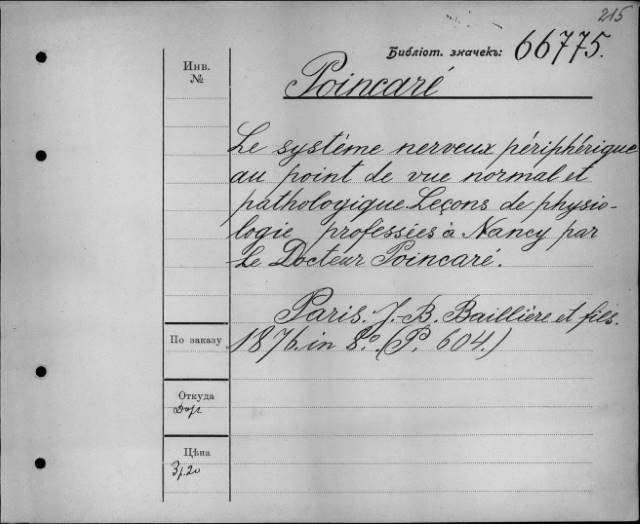 215
Библіот. значекъ: 66775.
Инв.
№
Poincaré
Le système nerveux périphérique
au point de vue normal et
pathologique Leçons de physio-
logie proféssiés à Nancy par
Le Docteur Poincaré.
Paris. J.-B. Baillière et fils.
По заказу
1876. in 8.º (P. 604.)
Откуда
Цѣна
3р.20